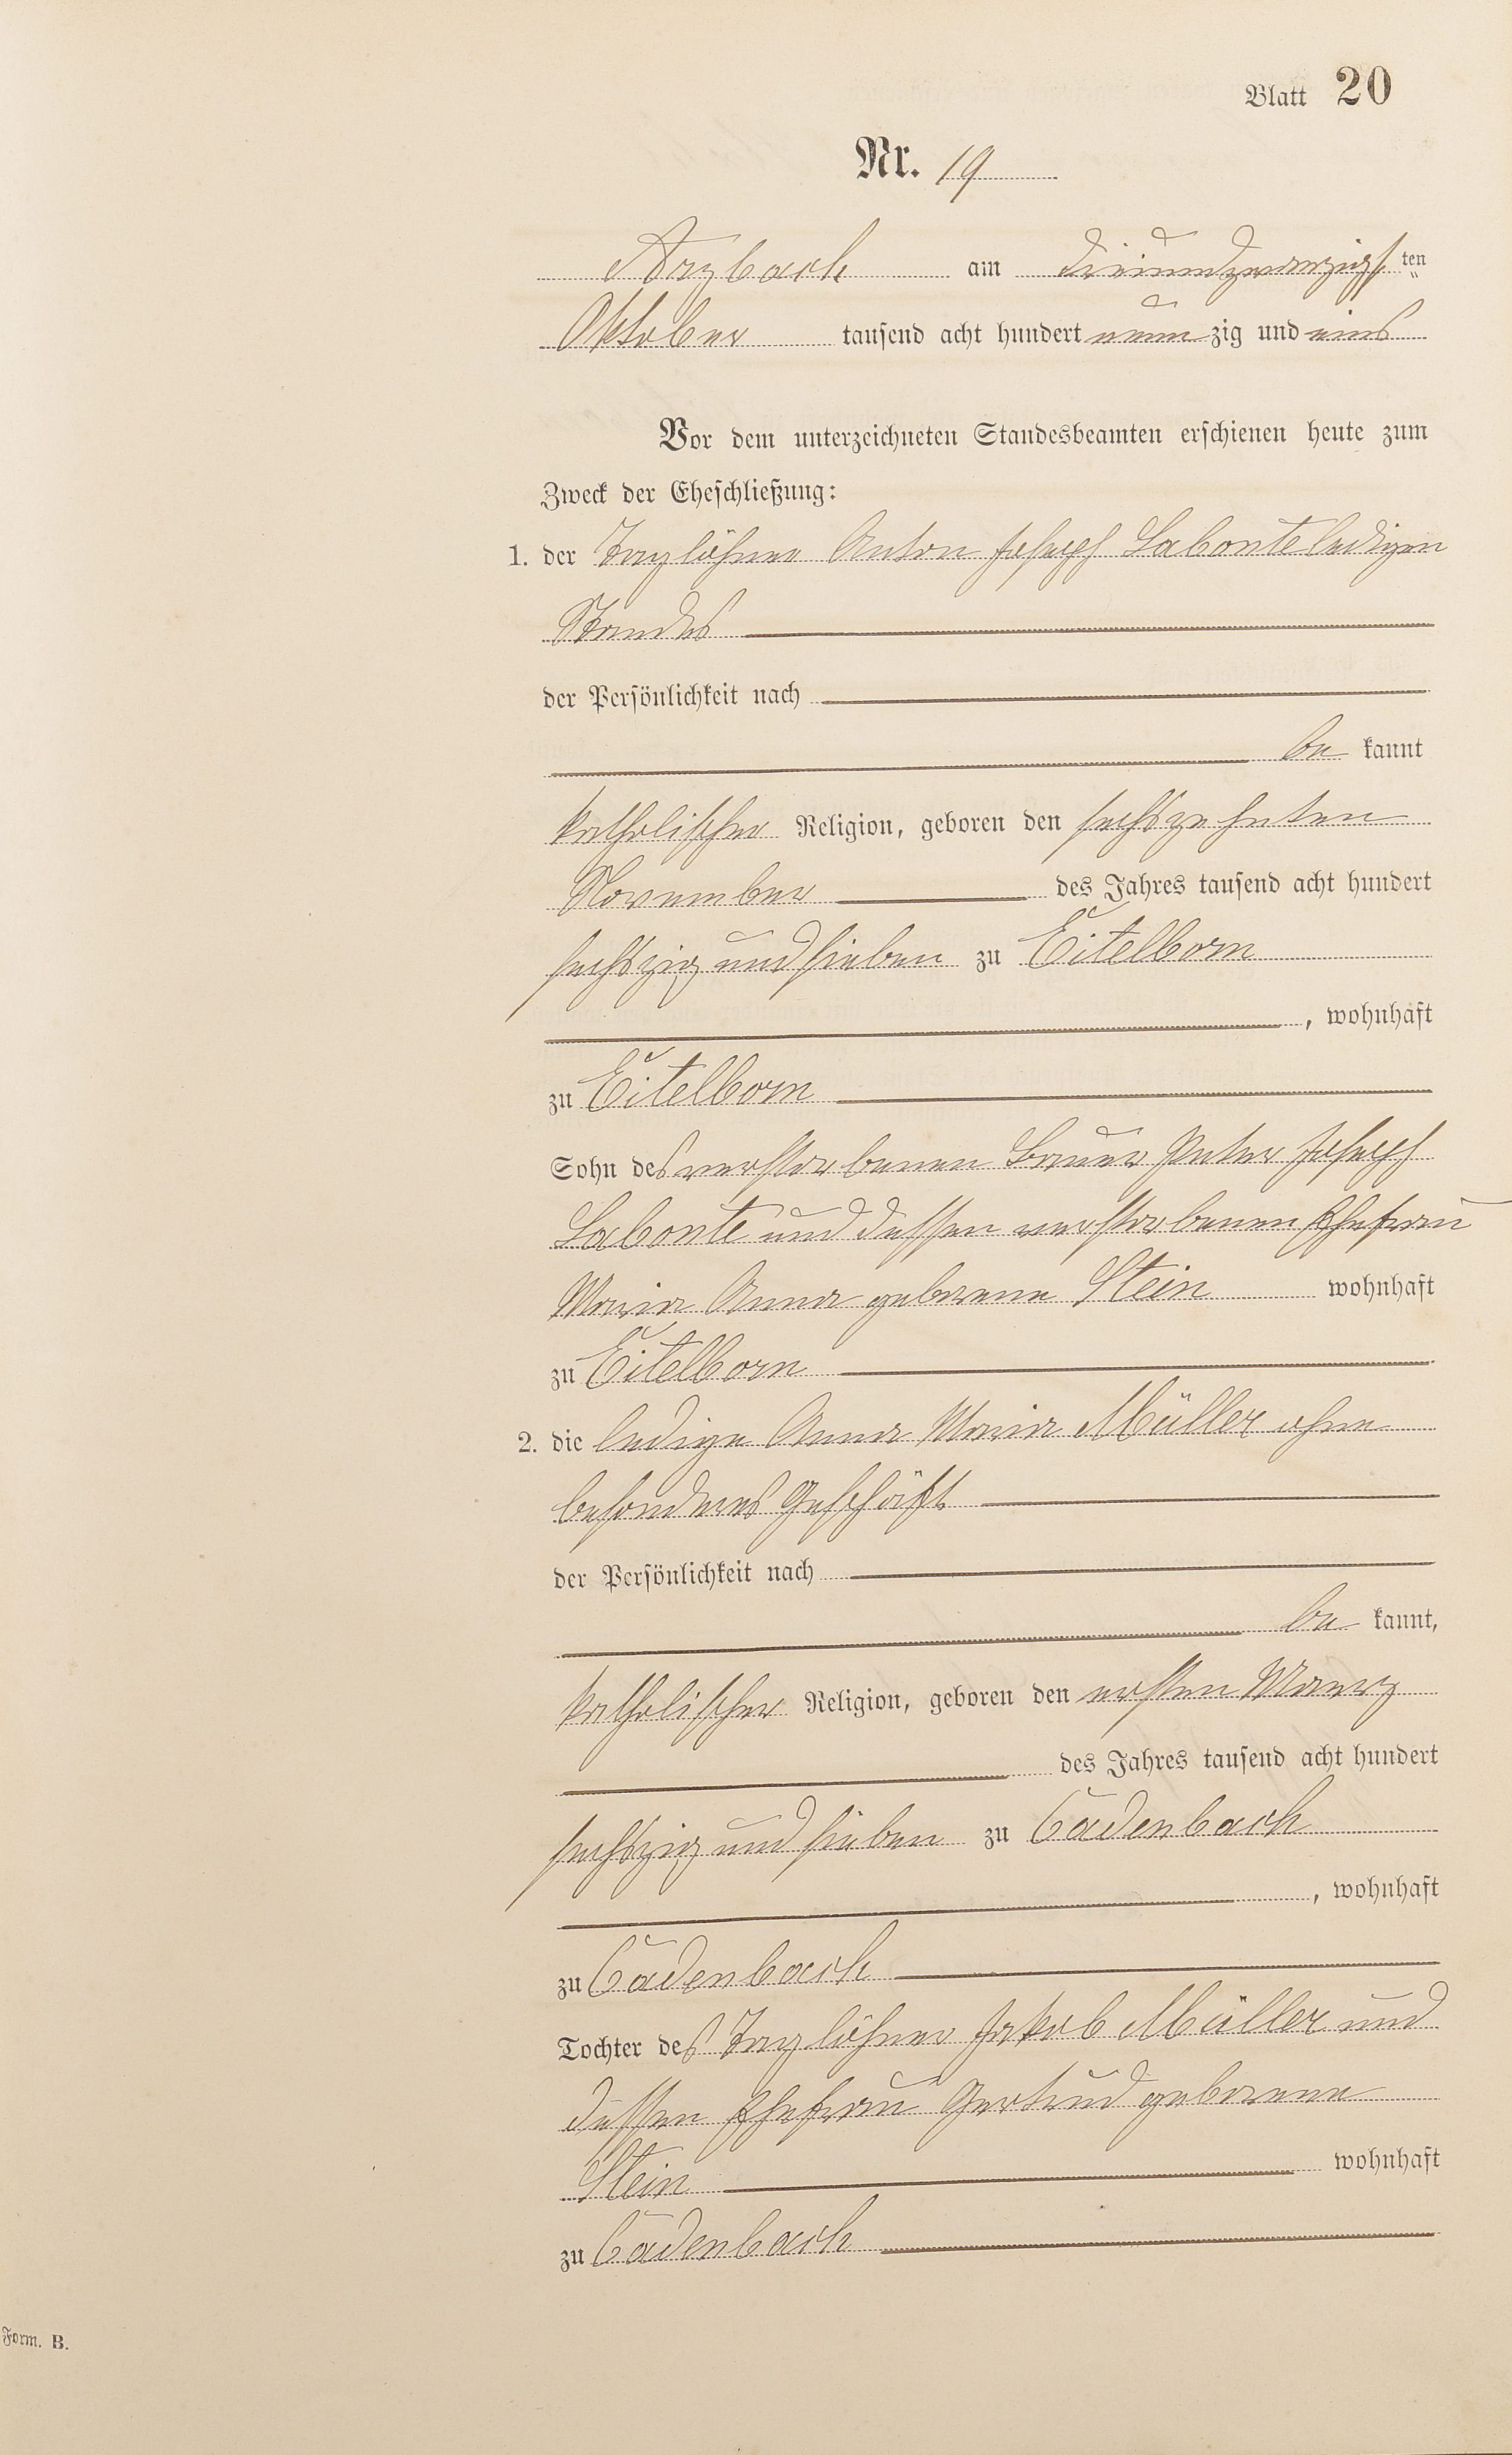 Blatt 20
Nr. 19
Arzbach am dreiundzwanzigsten
Oktober tausend acht hundert neunzig und eins
Vor dem unterzeichneten Standesbeamten erschienen heute zum
Zweck der Eheschließung:
1. der Taglöhner Anton Joseph Labonte ledigen
Standes
der Persönlichkeit nach
be kannt
katholischer Religion, geboren den sechszehnten
November des Jahres tausend acht hundert
sechszig und sieben zu Eitelborn
, wohnhaft
zu Eitelborn
Sohn des verstorbenen Bauer Peter Joseph
Labonte und dessen verstorbenen Ehefrau
Maria Anna geborene Stein wohnhaft
zu Eitelborn
2. die ledige Anna Maria Müller ohne
besonderes Geschäft
der Persönlichkeit nach
be kannt,
katholischer Religion, geboren den ersten Maerz
des Jahres tausend acht hundert
sechszig und sieben zu Cadenbach
, wohnhaft
zu Cadenbach
Tochter des Taglöhner Jakob Müller und
dessen Ehefrau Gertrud geborene
Stein wohnhaft
zu Cadenbach
Form. B.